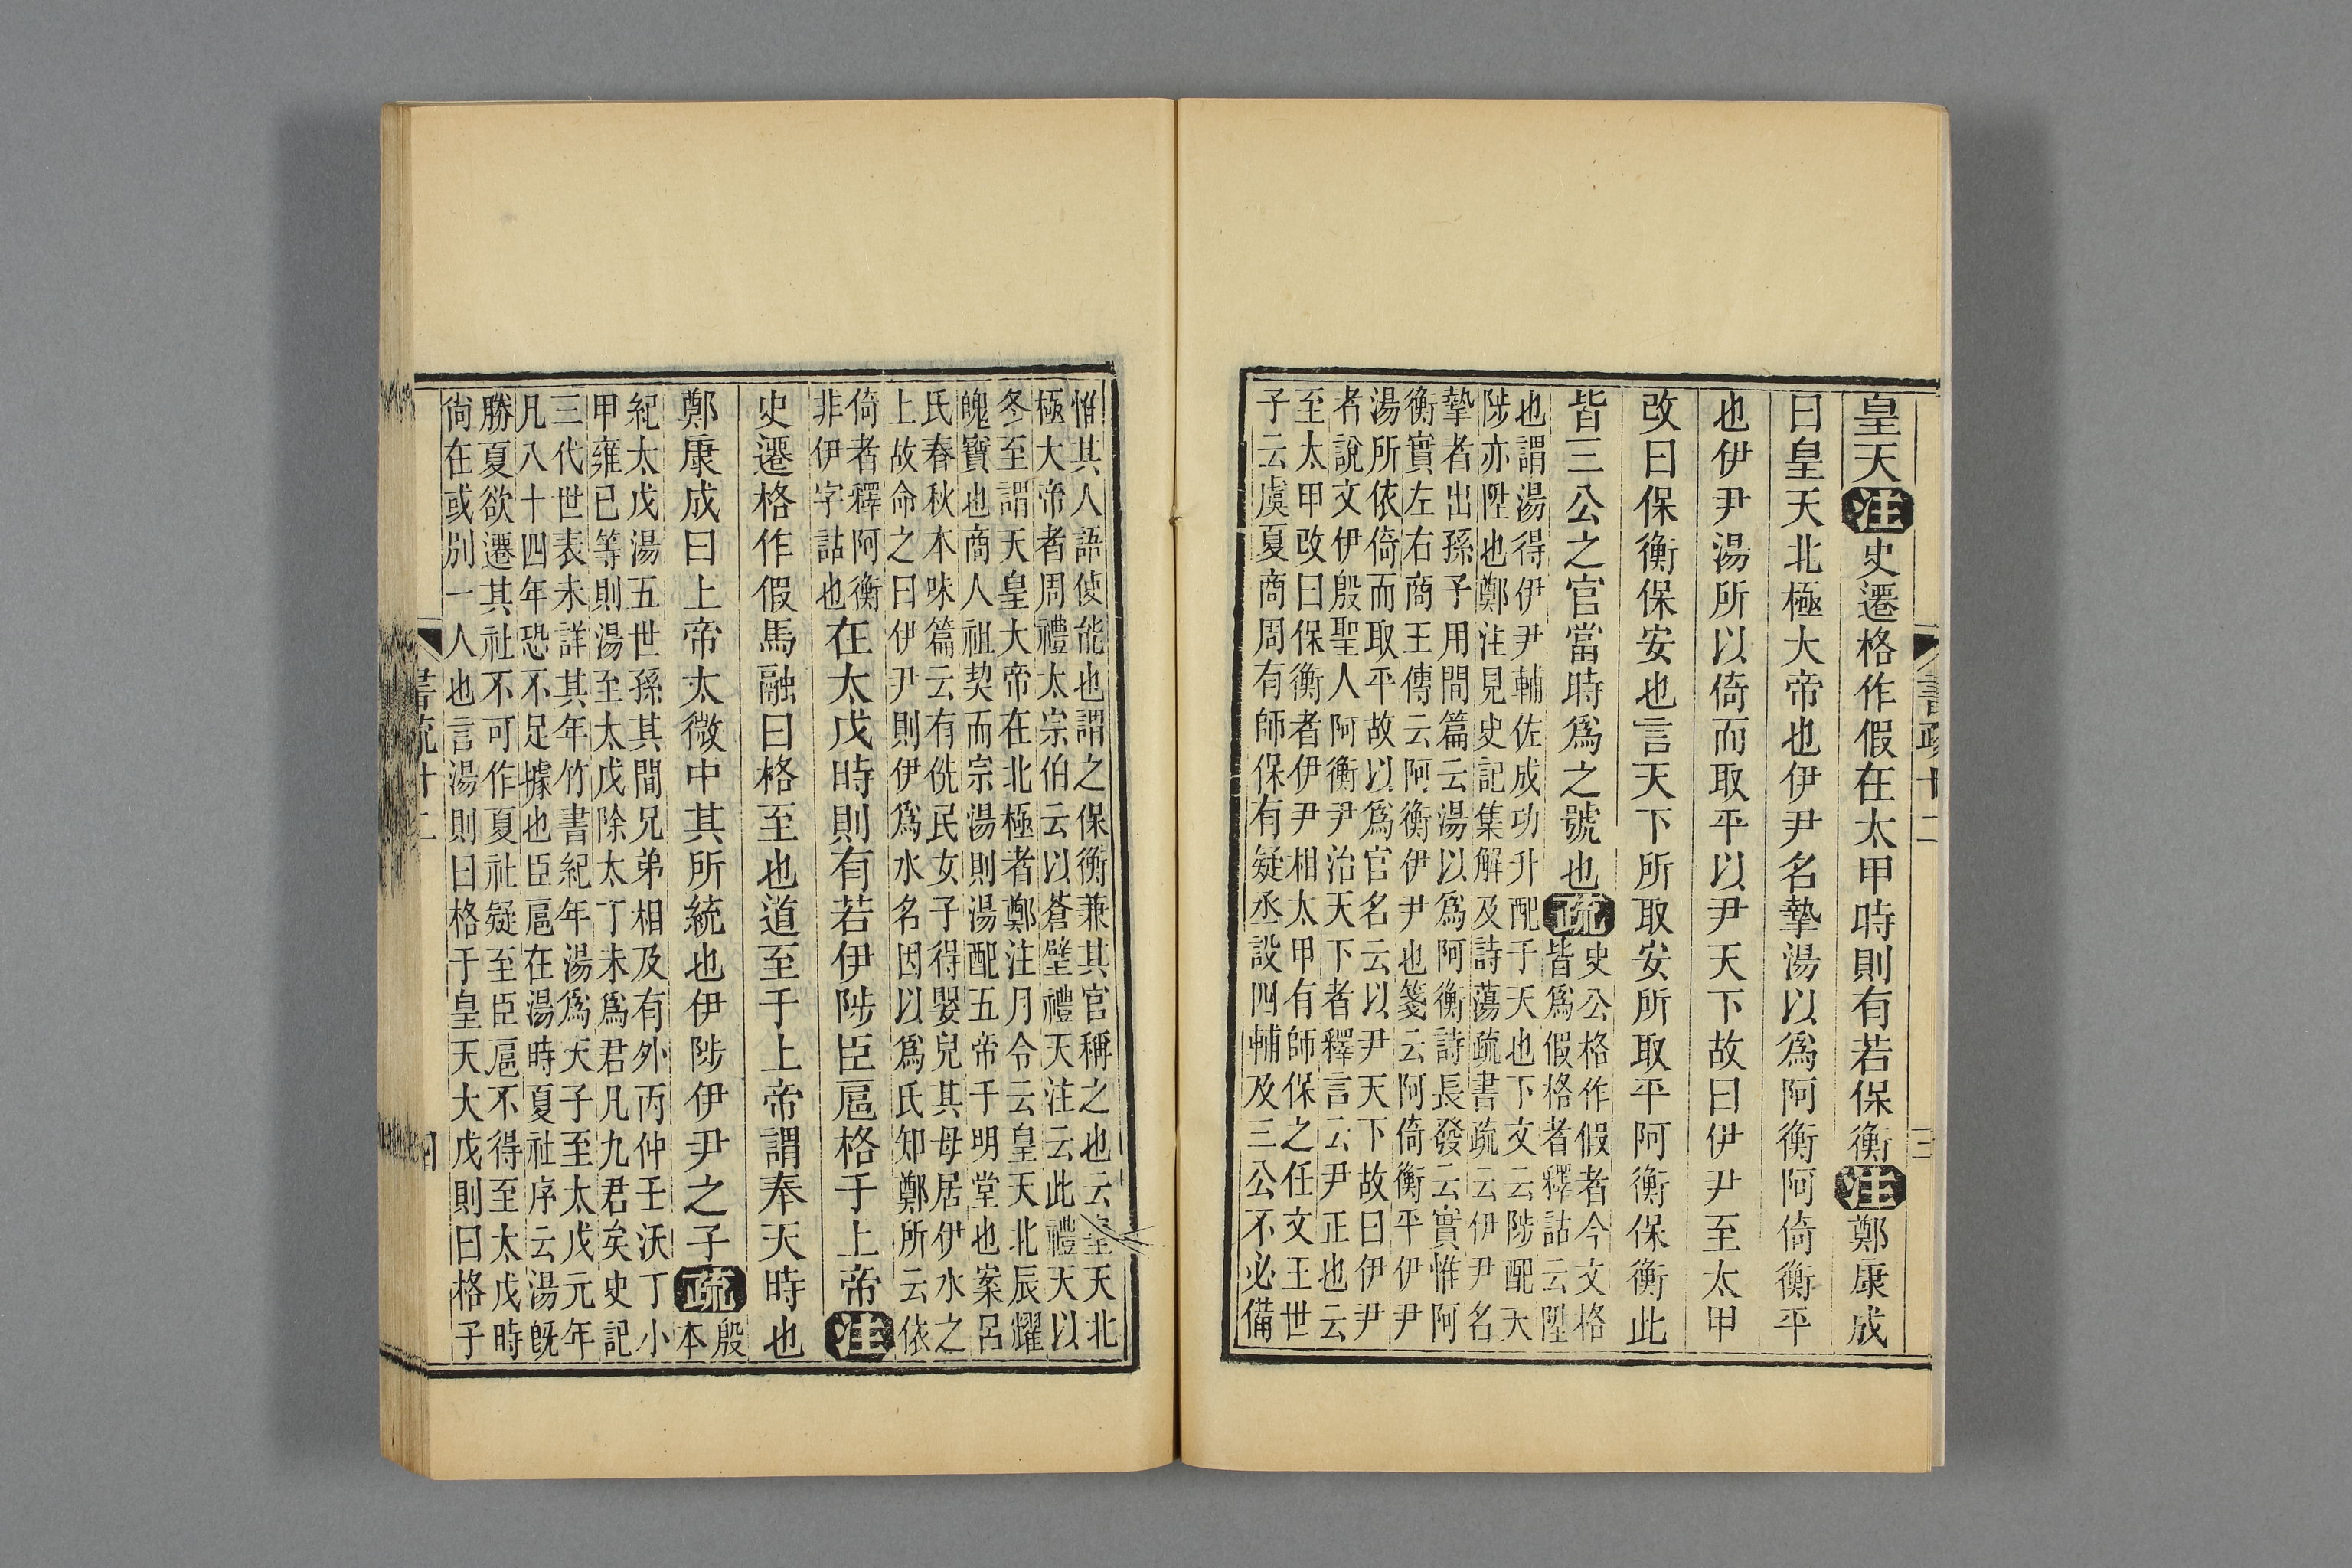 皇天注史遷格作假在太甲時則有若保衡注鄭康成
曰皇天北極大帝也伊尹名摯湯以爲阿衡阿倚衡平
也伊尹湯所以倚而取平以尹天下故曰伊尹至太甲
改曰保衡保安也言天下所取安所取平阿衡保衡此
皆三公之官當時爲之號也疏
史公格作假者今文格
皆爲假格者釋詁云陞
也謂湯得伊尹輔佐成功升配于天也下文云陟配天
陟亦陞也鄭注見史記集解及詩蕩疏書疏云伊尹名
摯者出孫子用間篇云湯以爲阿衡詩長發云實惟阿
衡實左右商王傳云阿衡伊尹也箋云阿倚衡平伊尹
湯所依倚而取平故以爲官名云以尹天下故曰伊尹
者說文伊殷聖人阿衡尹治天下者釋言云尹正也云
至太甲改曰保衡者伊尹相太甲有師保之任文王世
子云虞夏商周有師保有疑丞設四輔及三公不必備
書疏十二
三
惟其人語使能也謂之保衡兼其官稱之也云皇天北
極大帝者周禮太宗伯云以蒼璧禮天注云此禮天以
冬至謂天皇大帝在北極者鄭注月令云皇天北辰耀
魄寶也商人祖契而宗湯則湯配五帝于明堂也案呂
氏春秋本味篇云有侁民女子得嬰兒其母居伊水之
上故命之曰伊尹則伊爲水名因以爲氏知鄭所云依
倚者釋阿衡
非伊字詁也
在太戊時則有若伊陟臣扈格于上帝注
史遷格作假馬融曰格至也道至于上帝謂奉天時也
鄭康成曰上帝太微中其所統也伊陟伊尹之子疏
殷
本
紀太戊湯五世孫其間兄弟相及有外丙仲壬沃丁小
甲雍已等則湯至太戊除太丁未爲君凡九君矣史記
三代世表未詳其年竹書紀年湯爲天子至太戊元年
凡八十四年恐不足據也臣扈在湯時夏社序云湯旣
勝夏欲遷其社不可作夏社疑至臣扈不得至太戊時
尙在或別一人也言湯則曰格于皇天大戊則曰格子
書疏十二
四